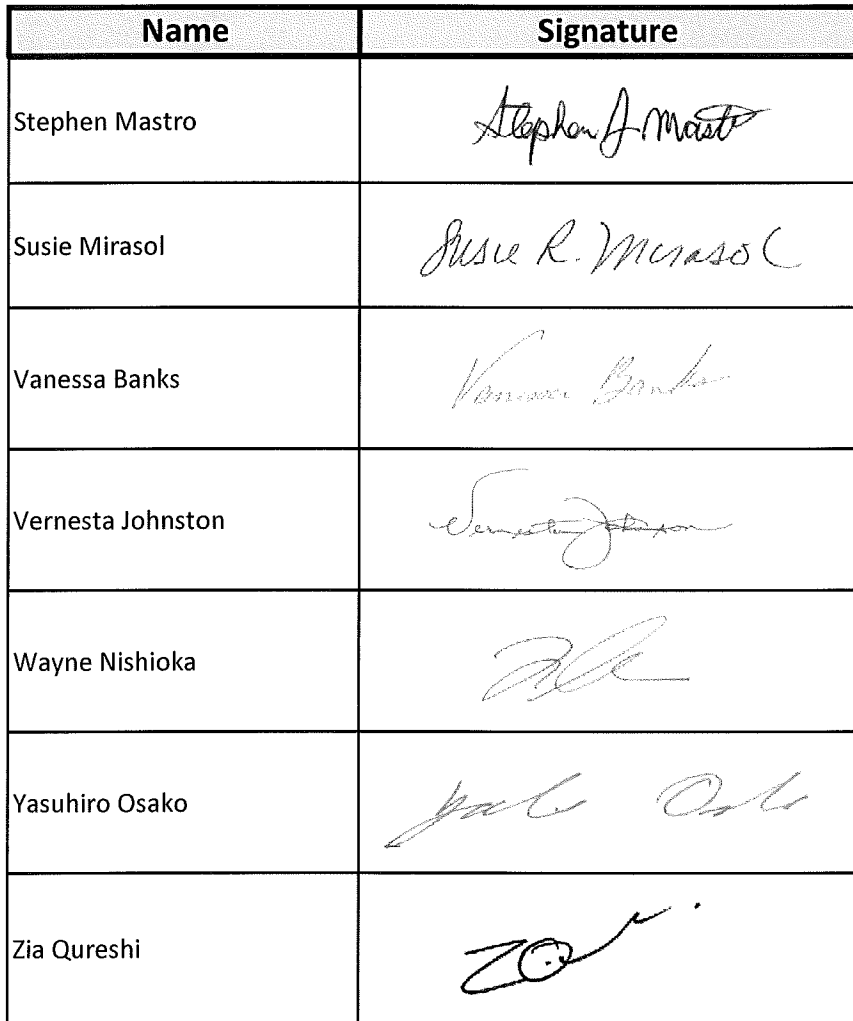 Name Signature
Stephen Mastro Stephen J Mastro
Susie Mirasol Susie R. Mirasol
Vanessa Banks Vanessa Banks
Vernesta Johnston Vernesta Johnston
Wayne Nishioka
Yasuhiro Osako
Zia Qureshi